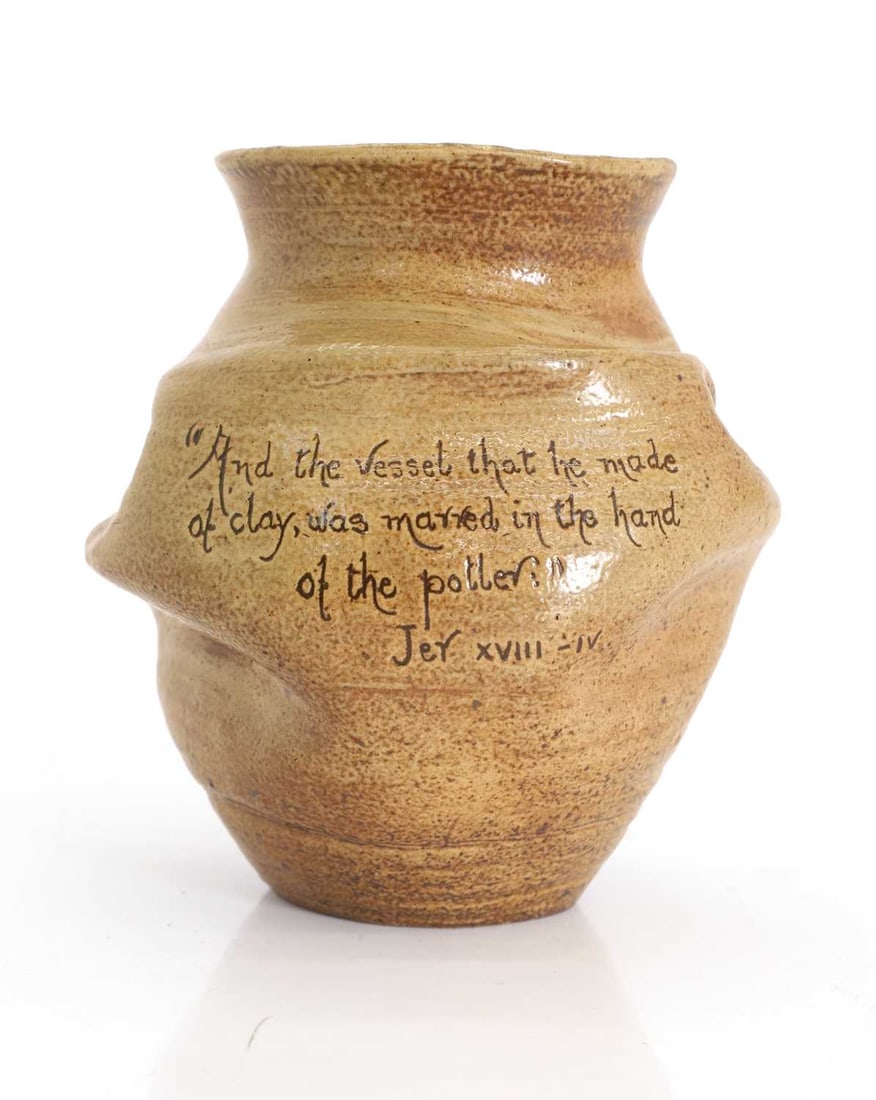 "And the vessel that he made
of clay, was marred in the hand
of the potter:"
Jer XVIII - IV